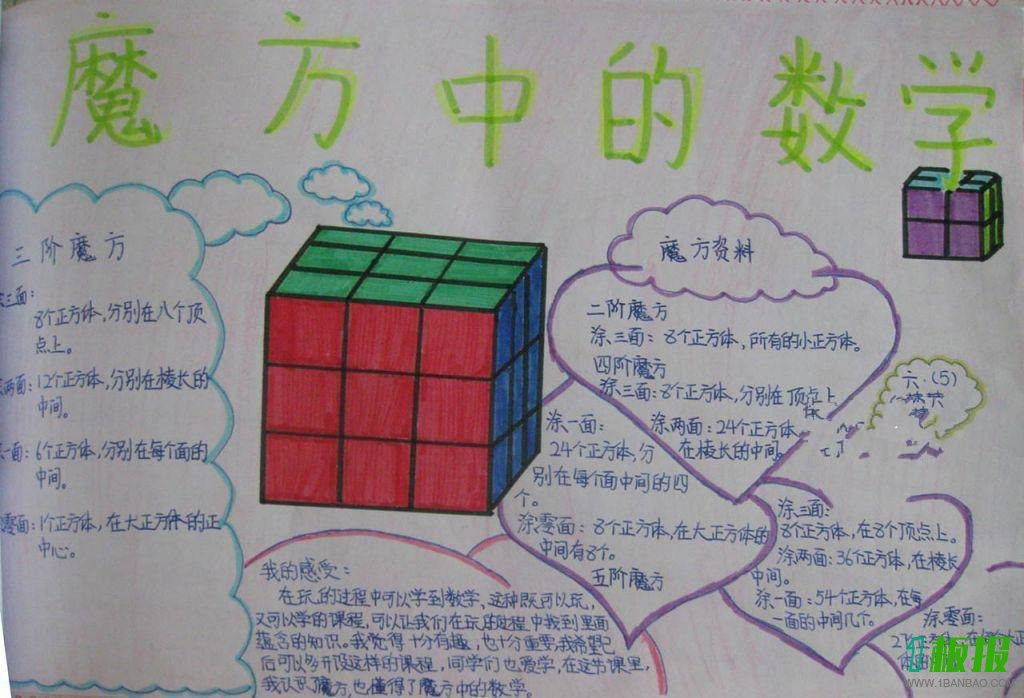 魔方中的数学
三阶魔方
三面:
8个正方体,分别在八个顶
点上。
两面:12个正方体,分别在棱长的
中间。
一面:6个正方体,分别在每个面的
中间。
零面:1个正方体,在大正方体的正
中心。
魔方资料
二阶魔方
涂三面:8个正方体,所有的小正方体。
四阶魔方
涂三面:8个正方体,分别在顶点上
涂两面:24个正方体
在棱长的中间。
涂一面:
24个正方体,分
别在每个面中间的四
个。
涂零面:8个正方体,在大正方体的
中间有8个。
五阶魔方
涂三面:
8个正方体,在8个顶点上。
涂两面:36个正方体,在棱长
中间。
涂一面:54个正方体,在每
一面的中间几个。
涂零面:
六.(5)
我的感受:
在玩的过程中可以学到数学,这种既可以玩,
又可以学的课程,可以让我们在玩的过程中找到里面
蕴含的知识。我觉得十分有趣,也十分重要,我希望已
后可以多开设这样的课程,同学们也爱学,在这节课里,
我认识了魔方,也懂得了魔方中的数学。
板报
WWW.1BANBAO.COM